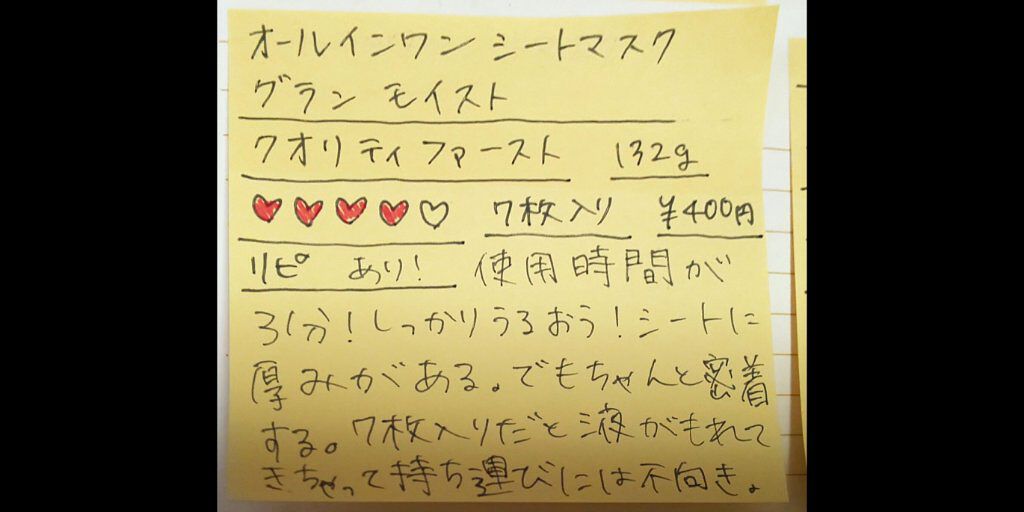 オールインワン シートマスク
グラン モイスト
クオリティファースト 132g
♥♥♥♥♡ 7枚入り ¥400円
リピ あり! 使用時間が
31分!しっかりうるおう!シートに
厚みがある。でもちゃんと密着
する。7枚入りだと液がもれて
きちゃって持ち運びには不向き。